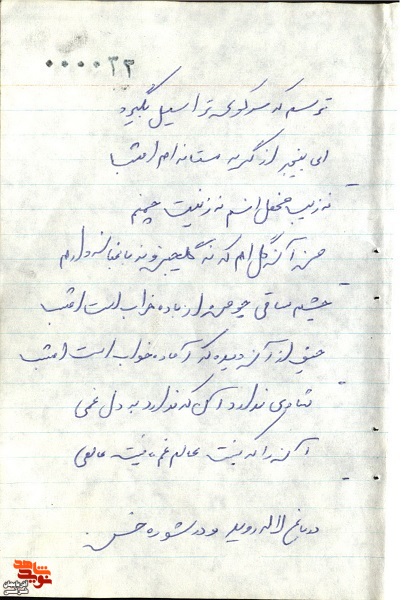 ۰۰۰۰۳۲
ترسم که سر کوی ترا سیل بگیرد
ای بیخبر از گریه مستانه ام امشب
نه زیب محفل انسم نه زینت چمنم
من آن گل ام که نه گلچین و نه باغبان دارم
چشم ساقی چو من از باده خراب است امشب
حیف از آن دیده که آماده خواب است امشب
شادی ندارد آنکه ندارد به دل غمی
آنرا که نیست عالم غم نیست عالمی
در باغ لاله روید و در شوره خس
شاهد
نوید